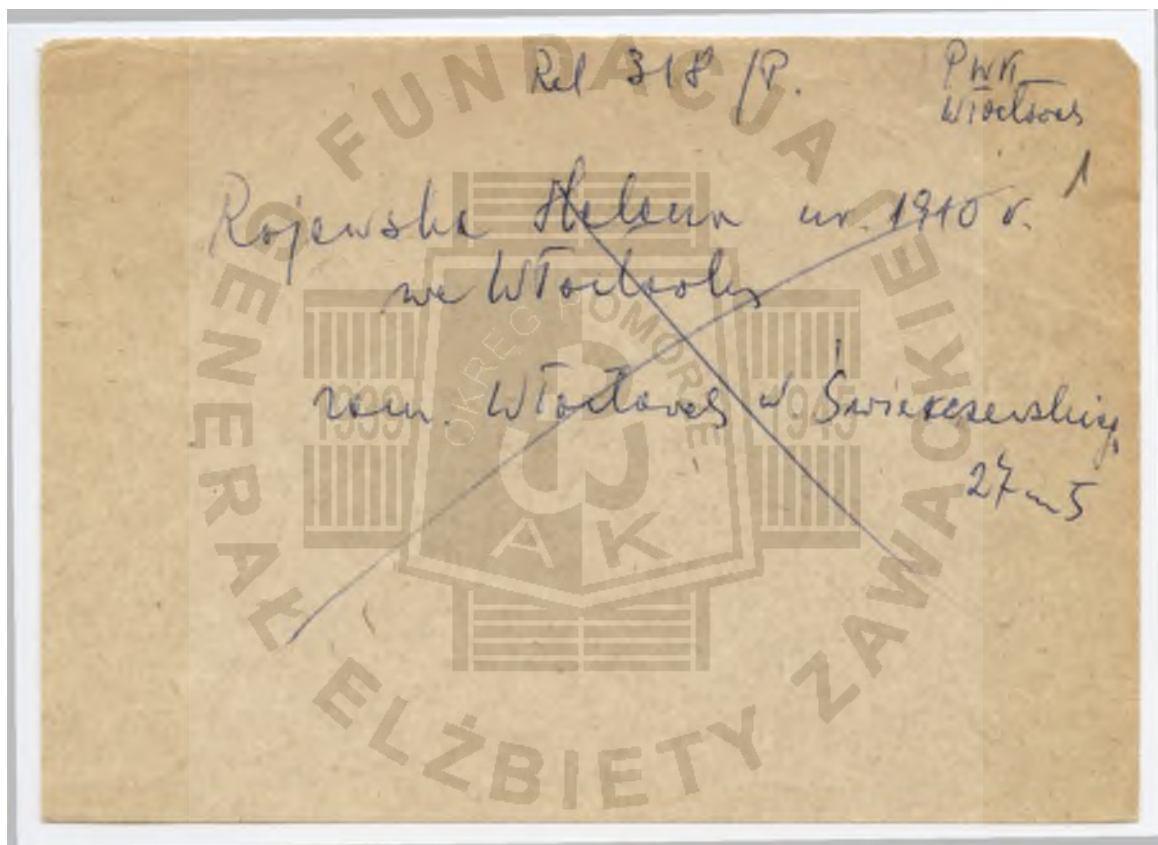 Rel 318/P.
PWK
Włocławek
1
Rojewska Helena ur. 1910 r.
we Włocławku
zam. Włocławek ul Świerczewskiego
27 m 5
FUNDACJA
GENERAŁ ELŻBIETY ZAWACKIEJ
OKRĘG POMORZE
1939
1945
AK